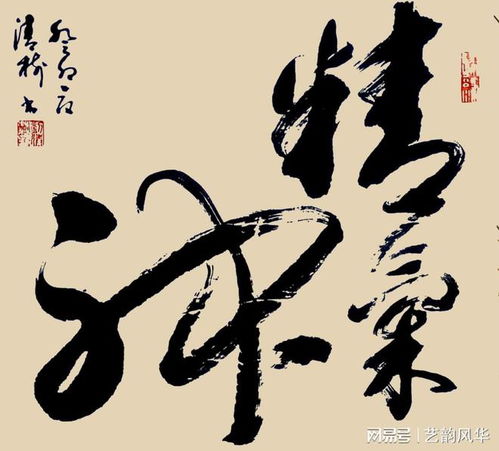 精氣
神
癸卯夏
清
书
网易号 | 艺韵风华